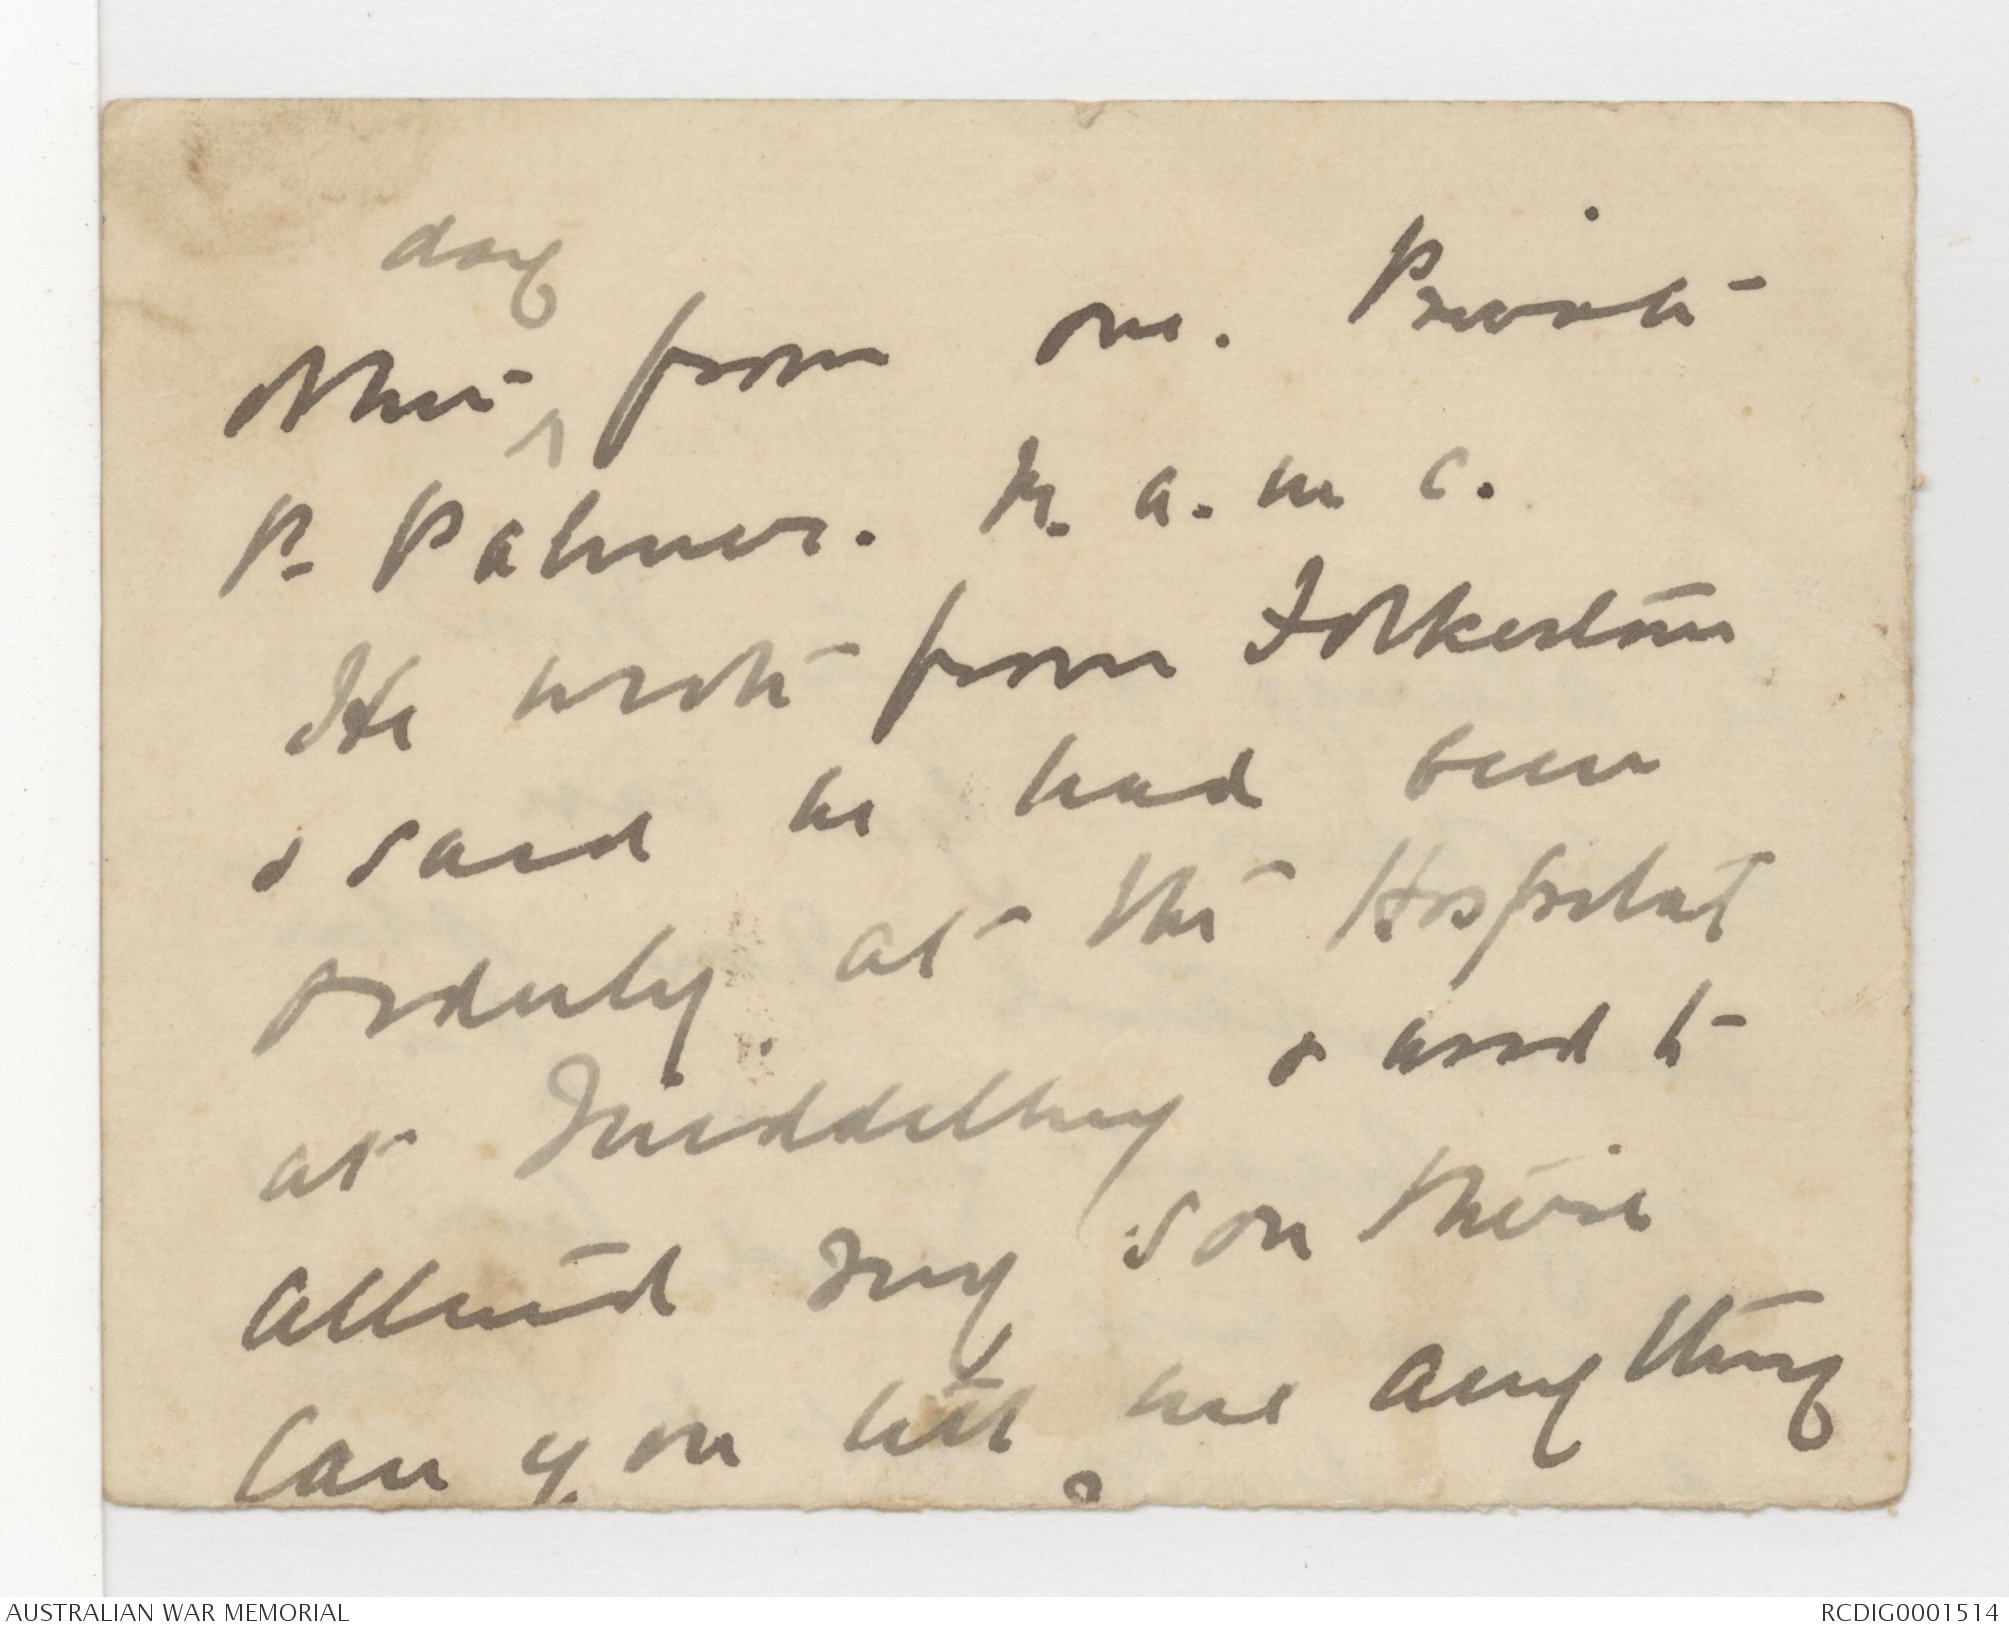 day
other ^ from one. Private
P. Palmer. R. a. m c.
He wrote from Folkestone
& said he had been
orderly at the Hospital
at Middelburg & used to
attend my son there
Can you tell me anything
AUSTRALIAN WAR MEMORIAL
RCDIG0001514